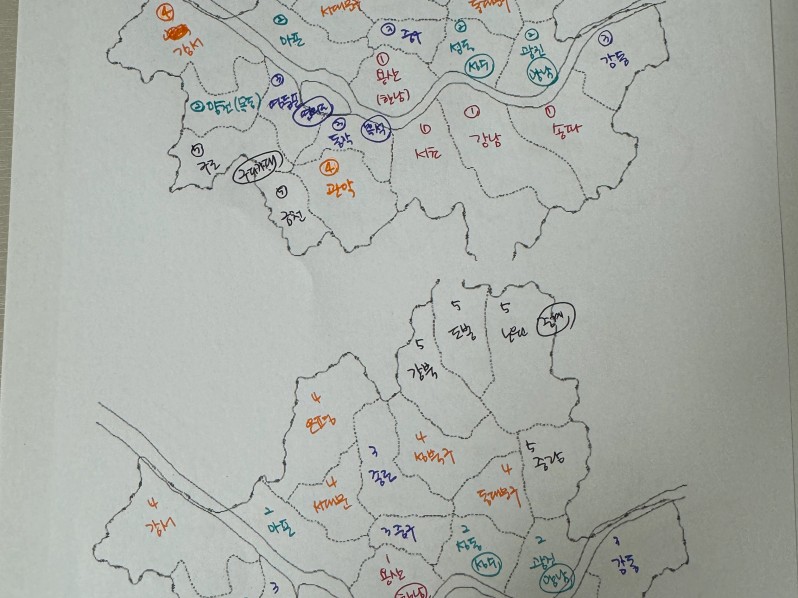 서대문구
동대문구
④
강서
②
마포
③ 중구
②
성동
성동
②
광진
강남
③
강동
①
용산
(한남)
② 양천(목동)
③
영등포
영등포
③
동작
동작
①
서초
①
강남
①
송파
⑤
구로
④
관악
⑤
금천
5
도봉
5
노원
5
강북
4
은평
4
성북구
3
종로
5
중랑
4
서대문
4
동대문구
4
강서
2
마포
3 중구
2
성동
성동
2
광진
강남
3
강동
1
용산
한남
3